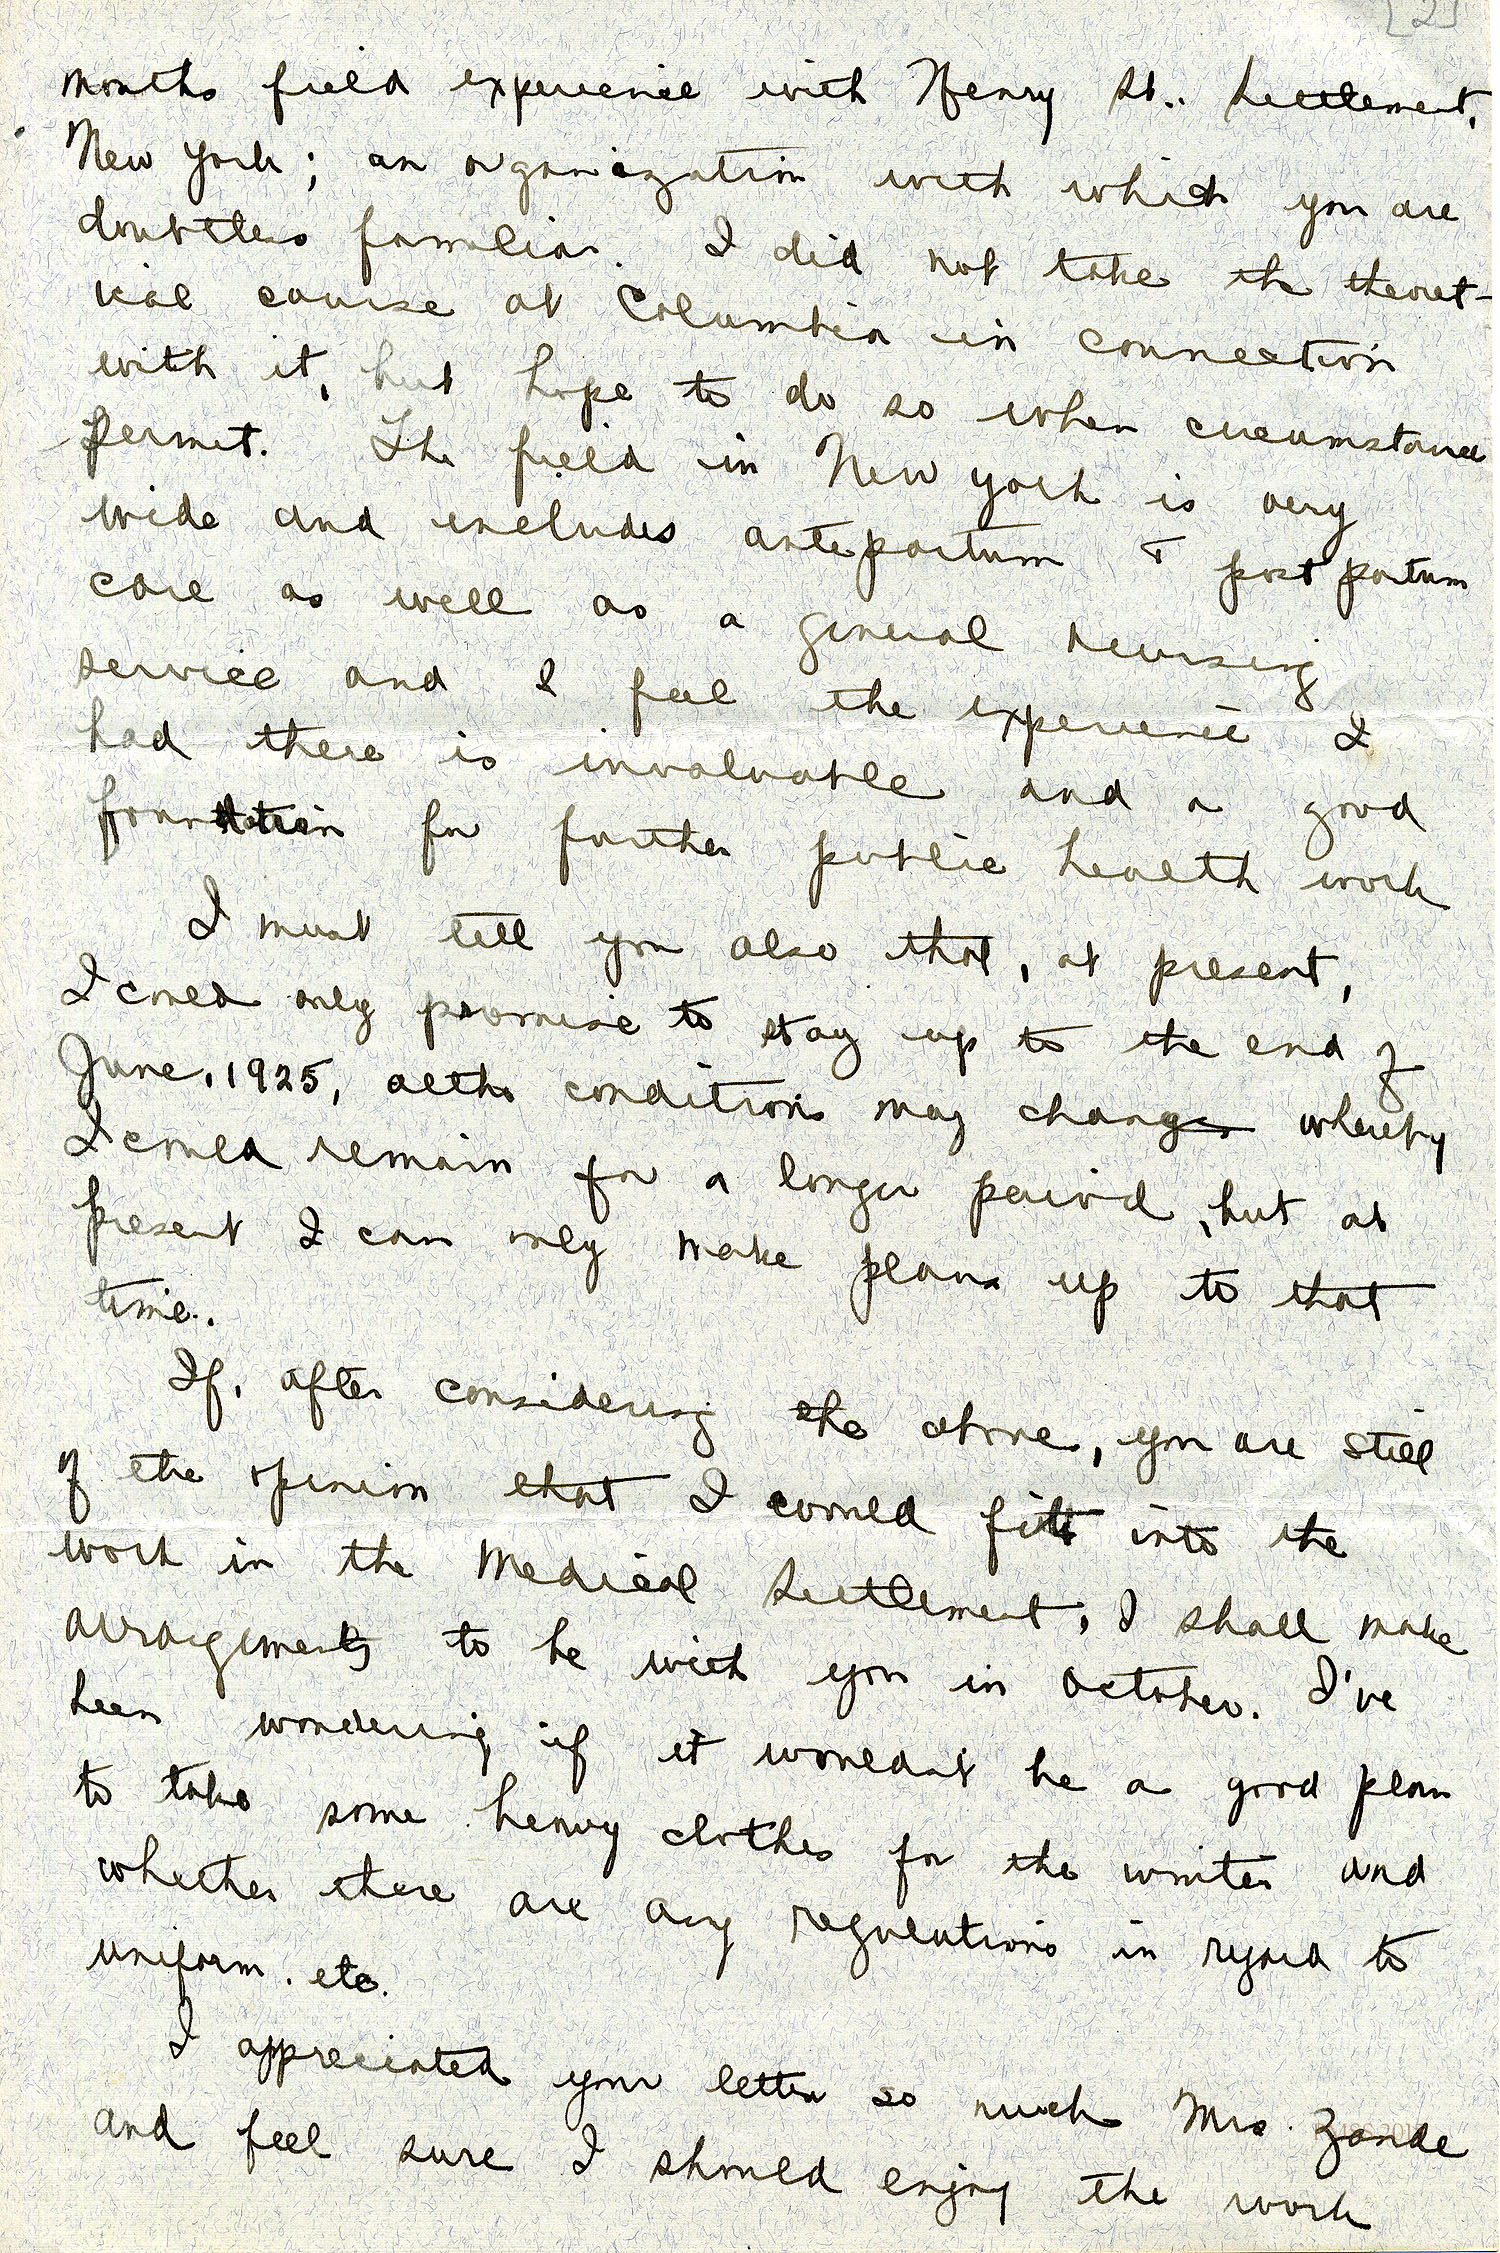 [2]
months field experience with Henry St.. Settlement,
New York; an organization with which you are
doubtless familiar. I did not take the theoret-
ical course at Columbia in connection
with it, but hope to do so when circumstances
permit. The field in New York is very
wide and includes antepartum & post partum
care as well as a general nursing
service and I feel the experience I
had there is invaluable and a good
foundation for further public health work
I must tell you also that, at present,
I could only promise to stay up to the end of
June, 1925, altho conditions may change whereby
I could remain for a longer period, but at
present I can only make plans up to that
time.
If, after considering the above, you are still
of the opinion that I could fit into the
work in the Medical Settlement, I shall make
arrangements to be with you in October. I've
been wondering if it wouldn't be a good plan
to take some heavy clothes for the winter and
whether there are any regulations in regard to
uniform. etc.
I appreciated your letter so much Mrs. Zande
and feel sure I should enjoy the work